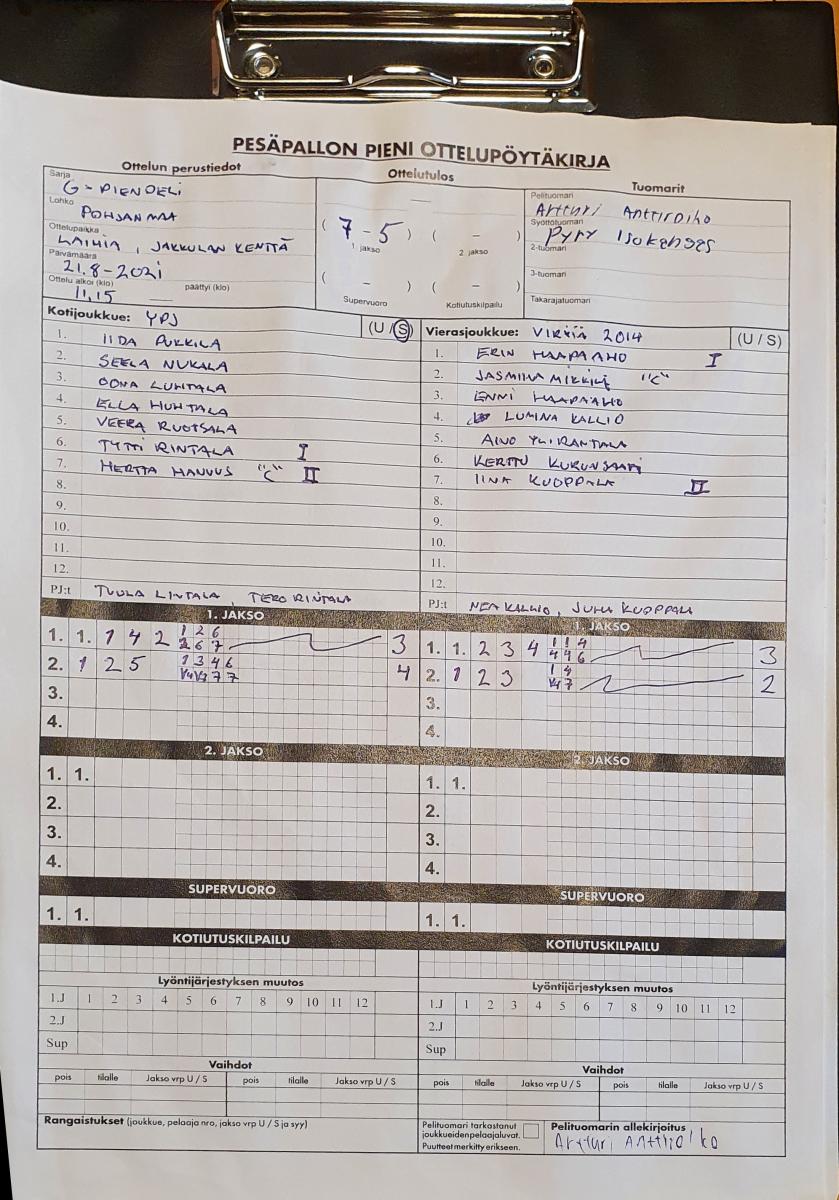 PESÄPALLON PIENI OTTELUPÖYTÄKIRJA
Ottelun perustiedot
Sarja
G-PIENPELI
Lohko
POHJANMAA
Ottelupaikka
LAIHIA, JAKKULAN KENTTÄ
Päivämäärä
21.8-2021
Ottelu alkoi (klo)
11.15
päättyi (klo)
Ottelutulos
( 7 - 5 ) ( - )
1 jakso 2 jakso
( - ) ( - )
Supervuoro Kotiutuskilpailu
Tuomarit
Pelituomari
Artturi Anttiroiko
Syöttötuomari
Pyry Isokangas
2-tuomari
3-tuomari
Takarajatuomari
Kotijoukkue: YPJ (U / S)
1. IIDA PUKKILA
2. SEELA NUKALA
3. OONA LUHTALA
4. ELLA HUHTALA
5. VEERA RUOTSALA
6. TYTTI RINTALA I
7. HERTTA "C" II
8.
9.
10.
11.
12.
PJ:t TUULA LINTALA, TERO RINTALA
Vierasjoukkue: VIRKIÄ 2014 (U / S)
1. ERIN HAAPAAHO I
2. JASMINA "C"
3. ENNI HAAPAAHO
4. LUMINA KALLIO
5. AINO YLIRANTALA
6. KERTTU
7. IINA KUOPPALA II
8.
9.
10.
11.
12.
PJ:t NEA KALLIO, JUHA KUOPPALA
1. JAKSO
1. 1. 1 4 2 1 2 6 3
2 6 7
2. 1 2 5 1 3 4 6 4
7 7
3.
4.
1. JAKSO
1. 1. 2 3 4 1 1 4 3
4 4 6
2. 1 2 3 1 4 2
7
3.
4.
2. JAKSO
1. 1.
2.
3.
4.
2. JAKSO
1. 1.
2.
3.
4.
SUPERVUORO
1. 1.
SUPERVUORO
1. 1.
KOTIUTUSKILPAILU
KOTIUTUSKILPAILU
Lyöntijärjestyksen muutos
1.J 1 2 3 4 5 6 7 8 9 10 11 12
2.J
Sup
Lyöntijärjestyksen muutos
1.J 1 2 3 4 5 6 7 8 9 10 11 12
2.J
Sup
Vaihdot
pois tilalle Jakso vrp U / S pois tilalle Jakso vrp U / S
Vaihdot
pois tilalle Jakso vrp U / S pois tilalle Jakso vrp U / S
Rangaistukset (joukkue, pelaaja nro, jakso vrp U / S ja syy)
Pelituomari tarkastanut
joukkueiden pelaajaluvat.
Puutteet merkitty erikseen.
Pelituomarin allekirjoitus
Artturi Anttiroiko